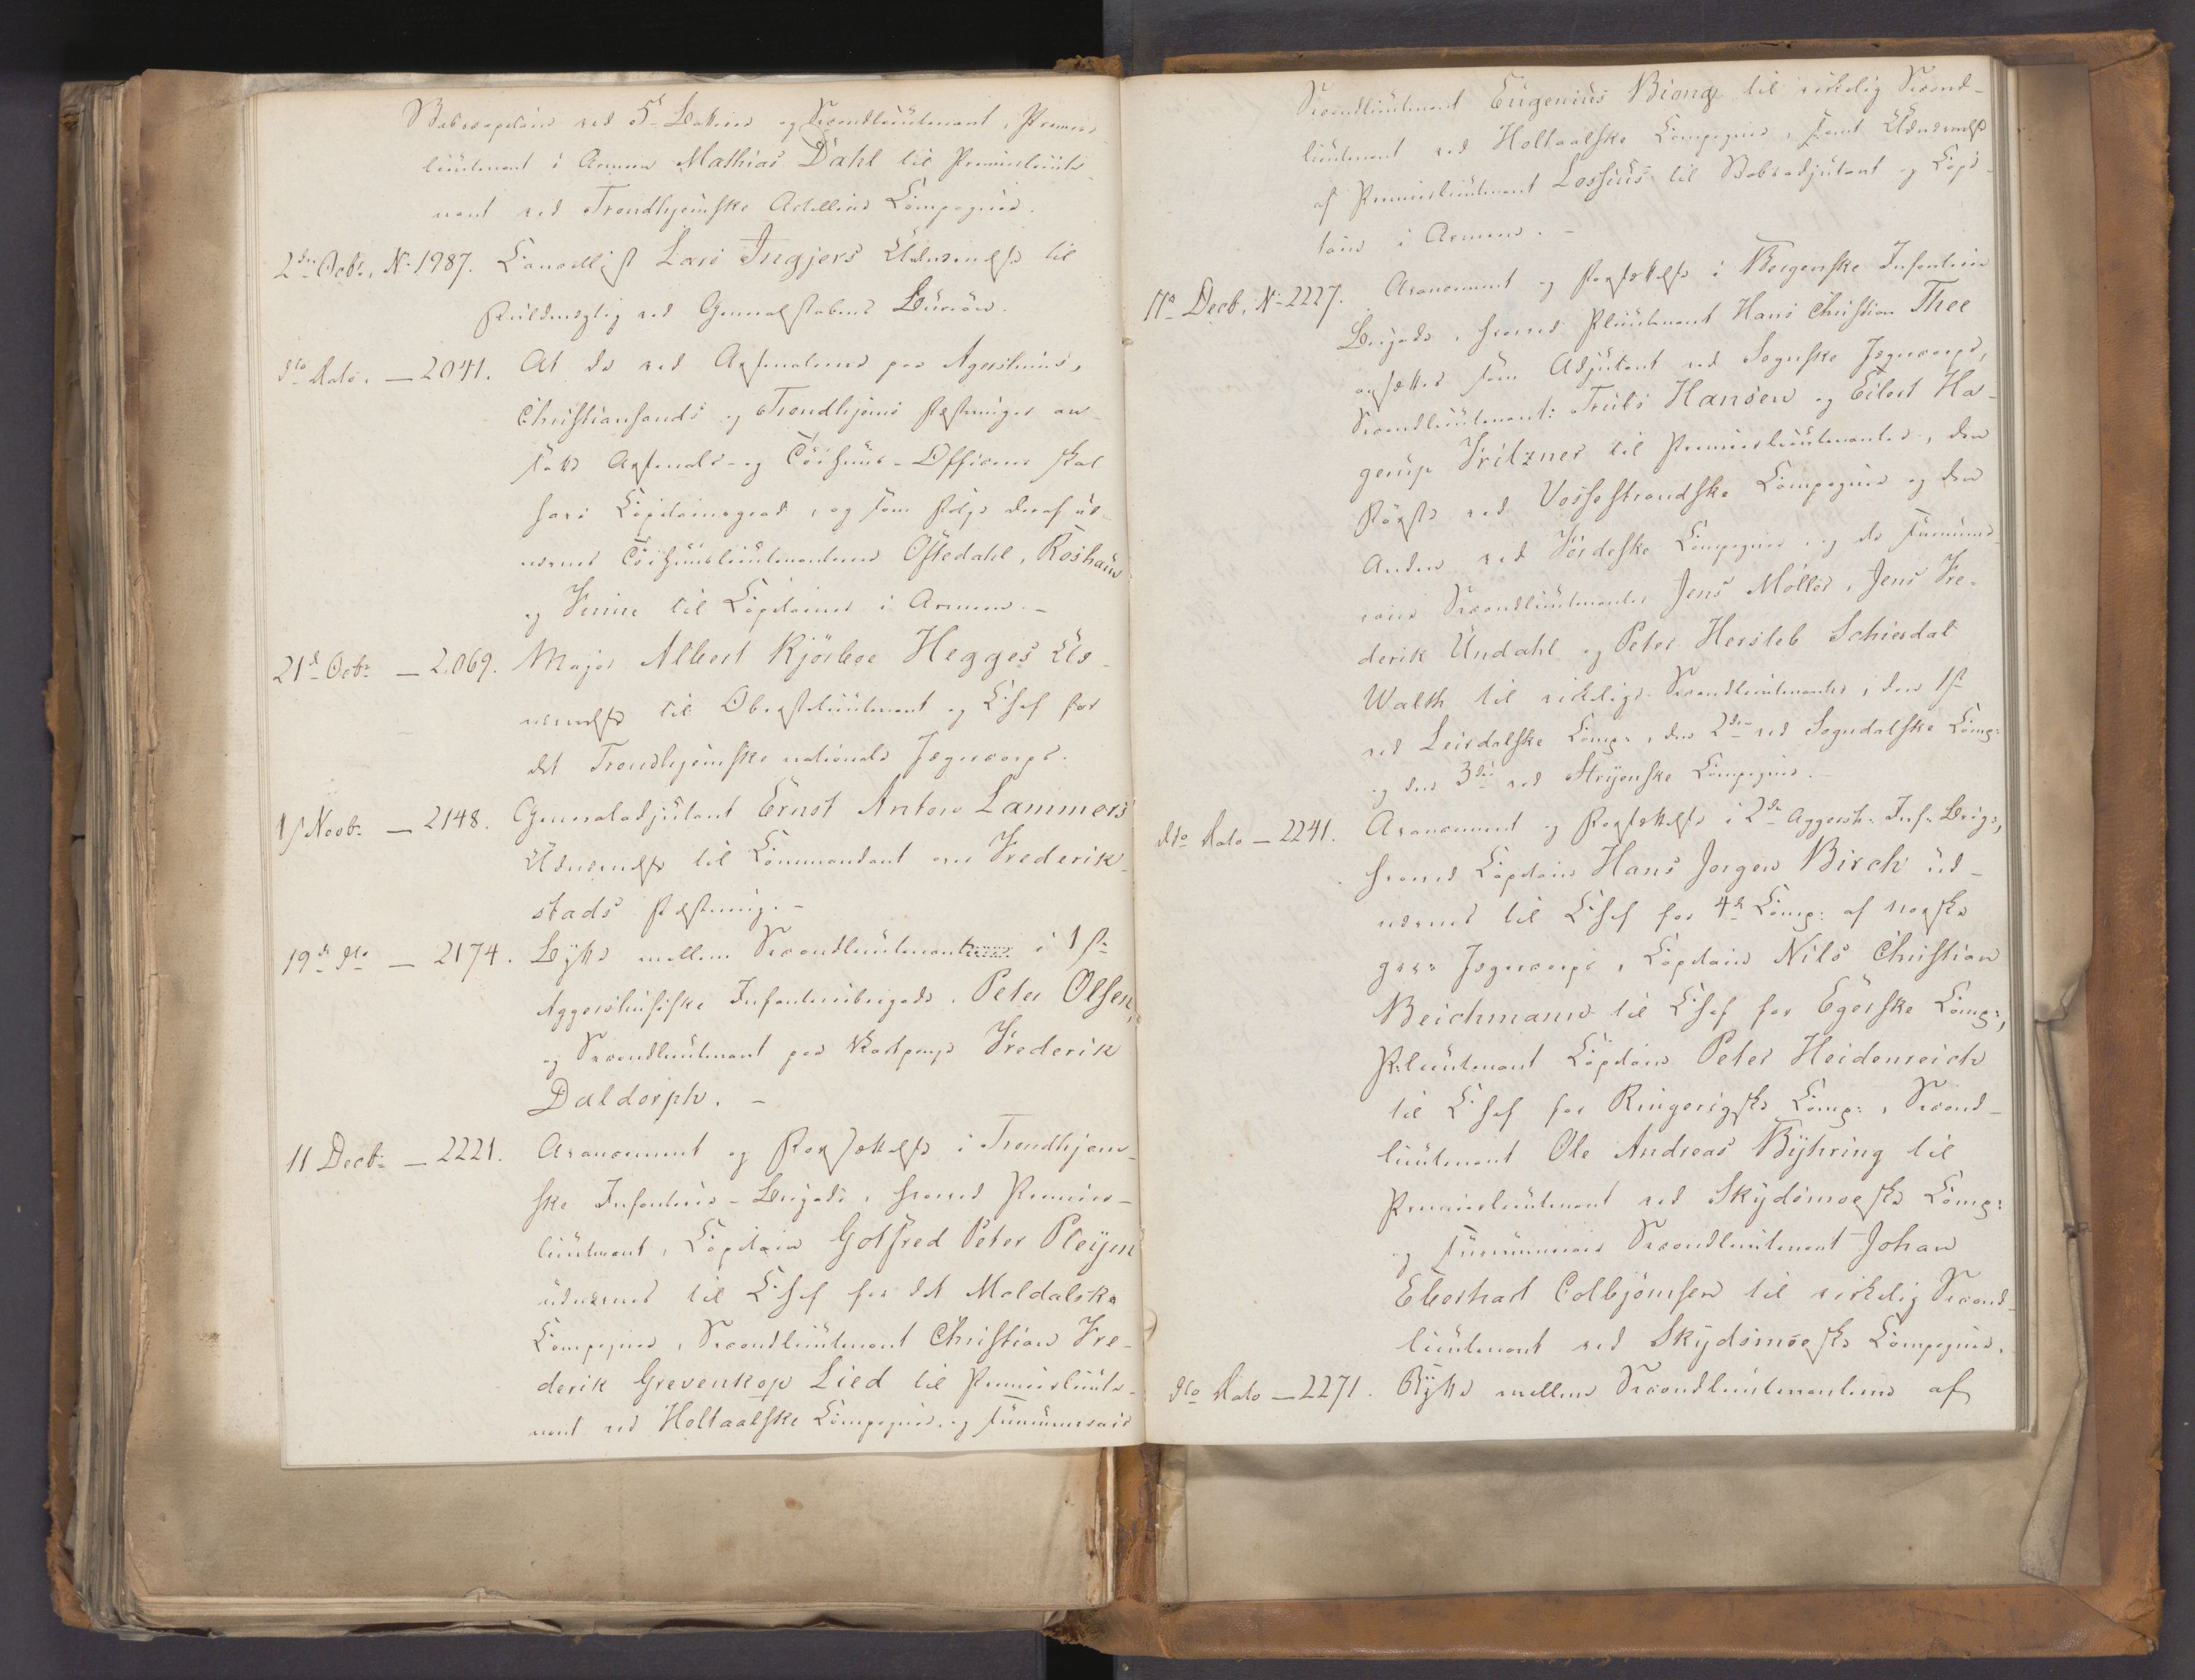 Stabscapitain ved 5te Batterie og Secondlieutenant, Premier-
lieutenant i Armeen Mathias Dahl til Premierlieute-
nant ved Trondhjemske Artillerie Compagnie.
2den Octbr, No 1987. Cancellist Lars Ingjers Udnævnelse til
Fuldmægtig ved Generalstabens Bureau.
dto Dato, — 2041. At de ved Arsenalerne paa Agershuus,
Christiansands og Trondhjems Fæstninger an-
satte Arsenals- og Töihuus-Officerer skal
have Capitainsgrad, og som Følge deraf ud-
nævnes Töihuuslieutenanterne Oftedahl, Roshauw
og Finne til Capitainer i Armeen. -
21de Octbr — 2069. Major Albert Kjörboe Hegges Ud-
nævnelse til Oberstlieutenant og Chef for
det Trondhjemske nationale Jægercorps.
1ste Novbr — 2148. Generaladjutant Ernst Anton Lammers
Udnævnelse til Commandant over Frederik-
stads Fæstning. -
19de dto — 2174. Bytte mellem Secondlieutenant i 1ste
Aggershusiske Infanteribrigade, Peter Olsen,
og Secondlieutenant paa Vartpenge Frederik
Daldorph. -
11 Decbr — 2221. Avancement og Forsættelse i Trondhjem-
ske Infanterie-Brigade, hvorved Premier-
lieutenant, Capitain Gotfred Peter Pleym
udnævnes til Chef for det Meldalske
Compagnie, Secondlieutenant Christian Fre-
derik Grevenkop Lied til Premierlieute-
nant ved Holtaalske Compagnie og surnumerair
Secondlieutenant Eugenius Biong til virkelig Second-
lieutenant ved Holtaalske Compagnie, samt Udnævnelse
af Premierlieutenant Lossius til Stabsadjutant og Capi-
tain i Armeen. -
17de Decb, No 2227. Avancement og Forsættelse i Bergenske Infanterie
Brigade, hvorved Plieutenant Hans Christian Thee
ansættes som Adjutant ved Sognske Jægercorps,
Secondlieutenant: Truls Hansen og Eilert Ha-
gerup Fritzner til Premierlieutenanter, den
Første ved Vossestrandske Compagnie og den
Anden ved Fördeske Compagnie, og de surnume-
raire Secondlieutenanter Jens Möller, Jens Fre-
derik Undahl og Peter Hersleb Schierdal
Walth til virkelige Secondlieutenanter, den 1ste
ved Leirdalske Comp:, den 2den ved Sogndalske Comp:
og den 3die ved Stryenske Compagnie. -
dto Dato — 2241. Avancement og Forsættelse i 2den Aggersh: Inf: Brig:,
hvorved Capitain Hans Jörgen Birch ud-
nævnes til Chef for 4de Comp: af norske
gev: Jægercorps, Capitain Nils Christian
Beichmann til Chef for Egerske Comp:,
P:lieutenant Capitain Peter Heidenreich
til Chef for Ringerigske Comp:, Second-
lieutenant Ole Andreas Byhring til
Premierlieutenant ved Skydsmoeske Comp:
og surnumerair Secondlieutenant Johan
Eberhart Colbjörnsen til virkelig Second-
lieutenant ved Skydsmoeske Compagnie.
dto Dato — 2271. Bytte mellem Secondlieutenanterne af